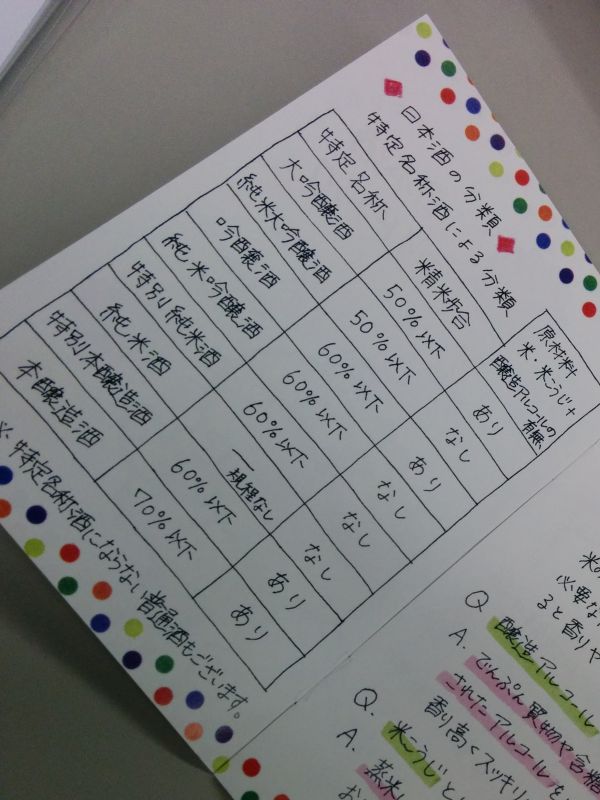 日本酒の分類
特定名称酒による分類
特定名称 精米歩合 原材料
米・米こうじ+
醸造アルコールの
有無
大吟醸酒 50%以下 あり
純米大吟醸酒 50%以下 なし
吟醸酒 60%以下 あり
純米吟醸酒 60%以下 なし
特別純米酒 60%以下 なし
純米酒 ー 規程なし なし
特別本醸造酒 60%以下 あり
本醸造酒 70%以下 あり
※特定名称酒にならない普通酒もございます。
米の
必要な
ると香りや
Q 醸造アルコール
A. でんぷん質物や含糖
されたアルコール
香り高くスッキリ
Q. 米こうじと
A. 蒸米